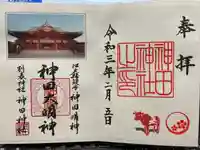 奉拝
令和三年二月五日
神田神社之印
江戸総鎮守 神田明神
神田大明神
別表神社 神田神社